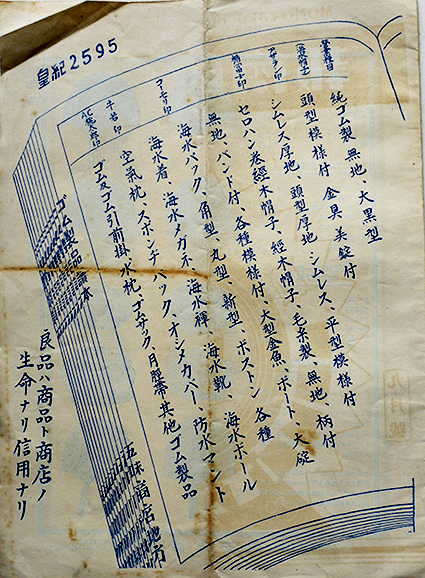 皇紀2595
営業種目
純ゴム製 無地、大黒型
頭型模様付 金具、美錠付
シムレス厚地、頭型厚地、シムレス、平型模様付
セロハン巻経木帽子、経木帽子、毛糸製、無地、柄付
無地、バンド付、各種模様付、大型金魚、ボート、大錠
海水バック、角型、丸型、新型、ボストン各種
海水着、海水メガネ、海水褌、海水靴、海水ボール
空氣枕、スポンヂバック、オシメカバー、防水マント
ゴム及ゴム引前掛、水枕、ゴムサック、月經帯其他ゴム製品
アザラシ印
コーモリ印
ゴム製品
五味商店地方
良品ハ商品ト商店ノ
生命ナリ信用ナリ
九月號